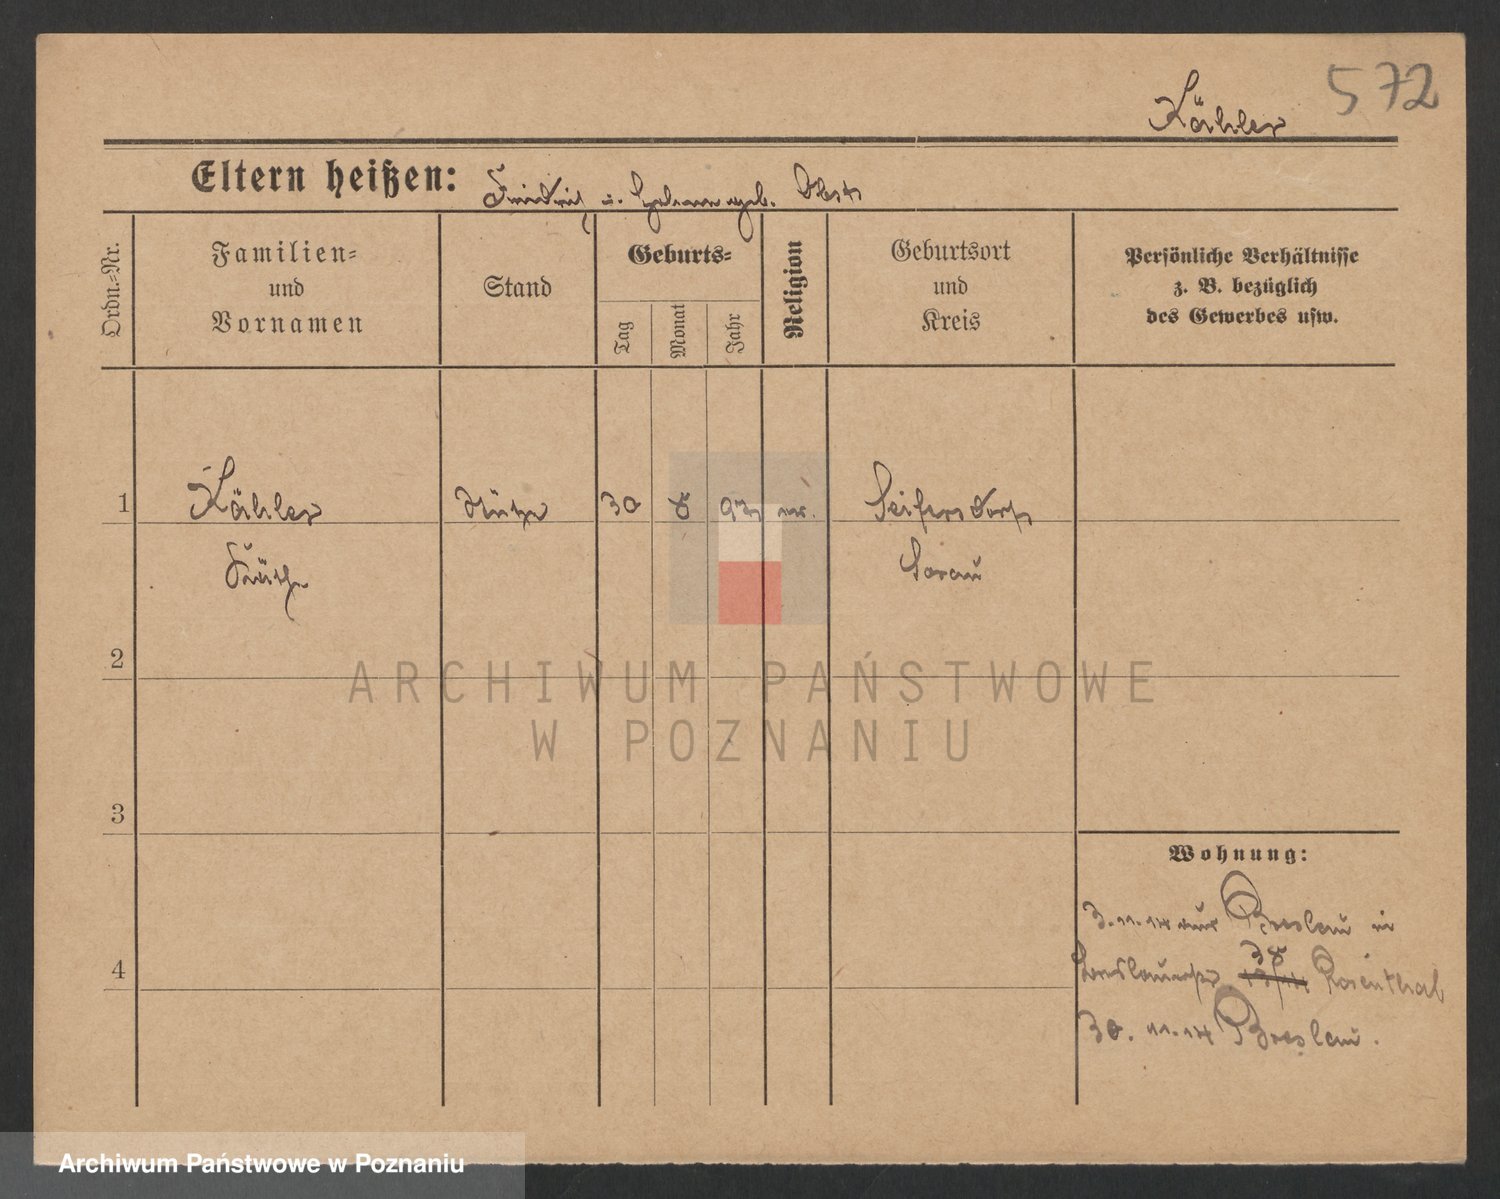 572
Kähler
Eltern heißen: Friedrich u. geb.
Ordn.-Nr.
Familien-
und
Vornamen
Stand
Geburts-
Tag
Monat
Jahr
Religion
Geburtsort
und
Kreis
Persönliche Verhältnisse
z. B. bezüglich
des Gewerbes usw.
1
Kähler
Stütze
30
8
Seifersdorf
Käthe
Sorau
2
ARCHIWUM PAŃSTWOWE
W POZNANIU
3
Wohnung:
3.11.14 aus Breslau in
38 Rosenthal
4
30. 11. 14 Breslau.
Archiwum Państwowe w Poznaniu